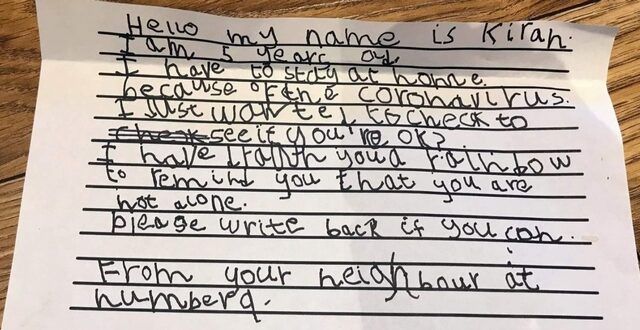 Hello my name is Kiran.
I am 5 years old
I have to stay at home
because of the coronavirus.
I just wanted to check to
check see if you're OK?
I have drawn you a rainbow
to remind you that you are
not alone.
please write back if you can.
From your neighbour at
number 9.